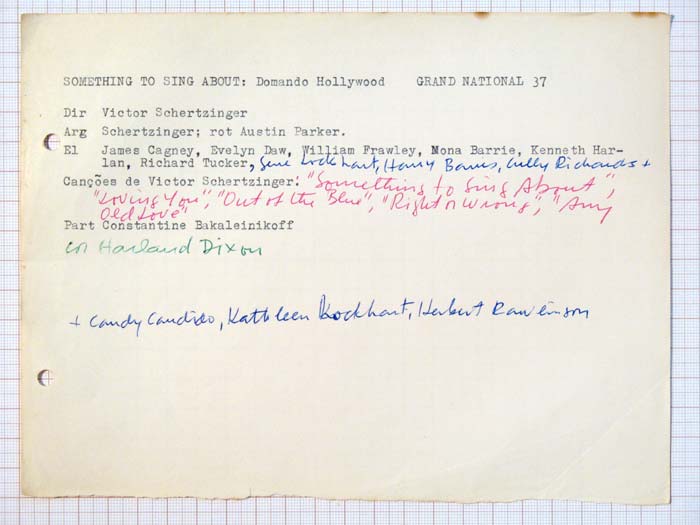 SOMETHING TO SING ABOUT: Domando Hollywood GRAND NATIONAL 37
Dir Victor Schertzinger
Arg Schertzinger; rot Austin Parker.
El James Cagney, Evelyn Daw, William Frawley, Mona Barrie, Kenneth Har-
lan, Richard Tucker, Gene Lockhart, Harry Barris, Cully Richards +
Canções de Victor Schertzinger: "Something to Sing About",
"Loving You", "Out of the Blue", "Right or Wrong", "Any
Old Love"
Part Constantine Bakaleinikoff
cor Harland Dixon
+ Candy Candido, Kathleen Lockhart, Herbert Rawlinson